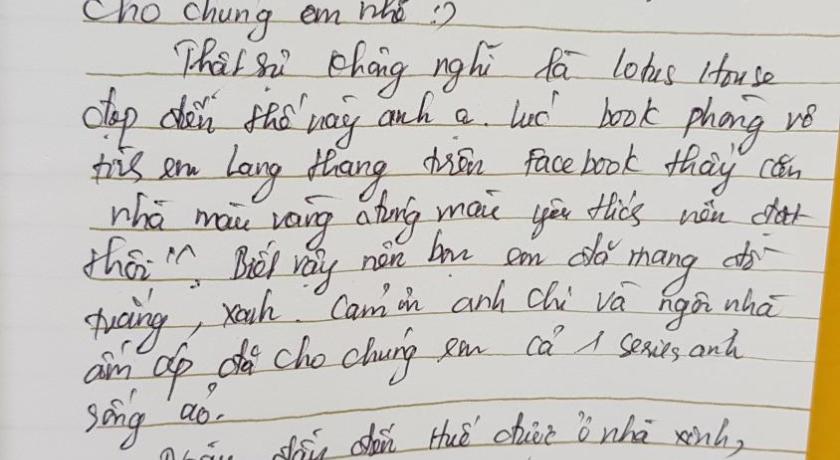 cho chúng em nhé :)
Thật sự không nghĩ là Lotus House
đẹp đến thế này anh ạ. Lúc book phòng vô
tình em lang thang trên facebook thấy căn
nhà màu vàng đúng màu yêu thích nên đặt
thôi ^^. Biết vậy nên bọn em đã mang đồ
trắng, xanh. Cảm ơn anh chị và ngôi nhà
ấm áp đã cho chúng em cả 1 series ảnh
sống ảo.
đến Huế được ở nhà xinh,